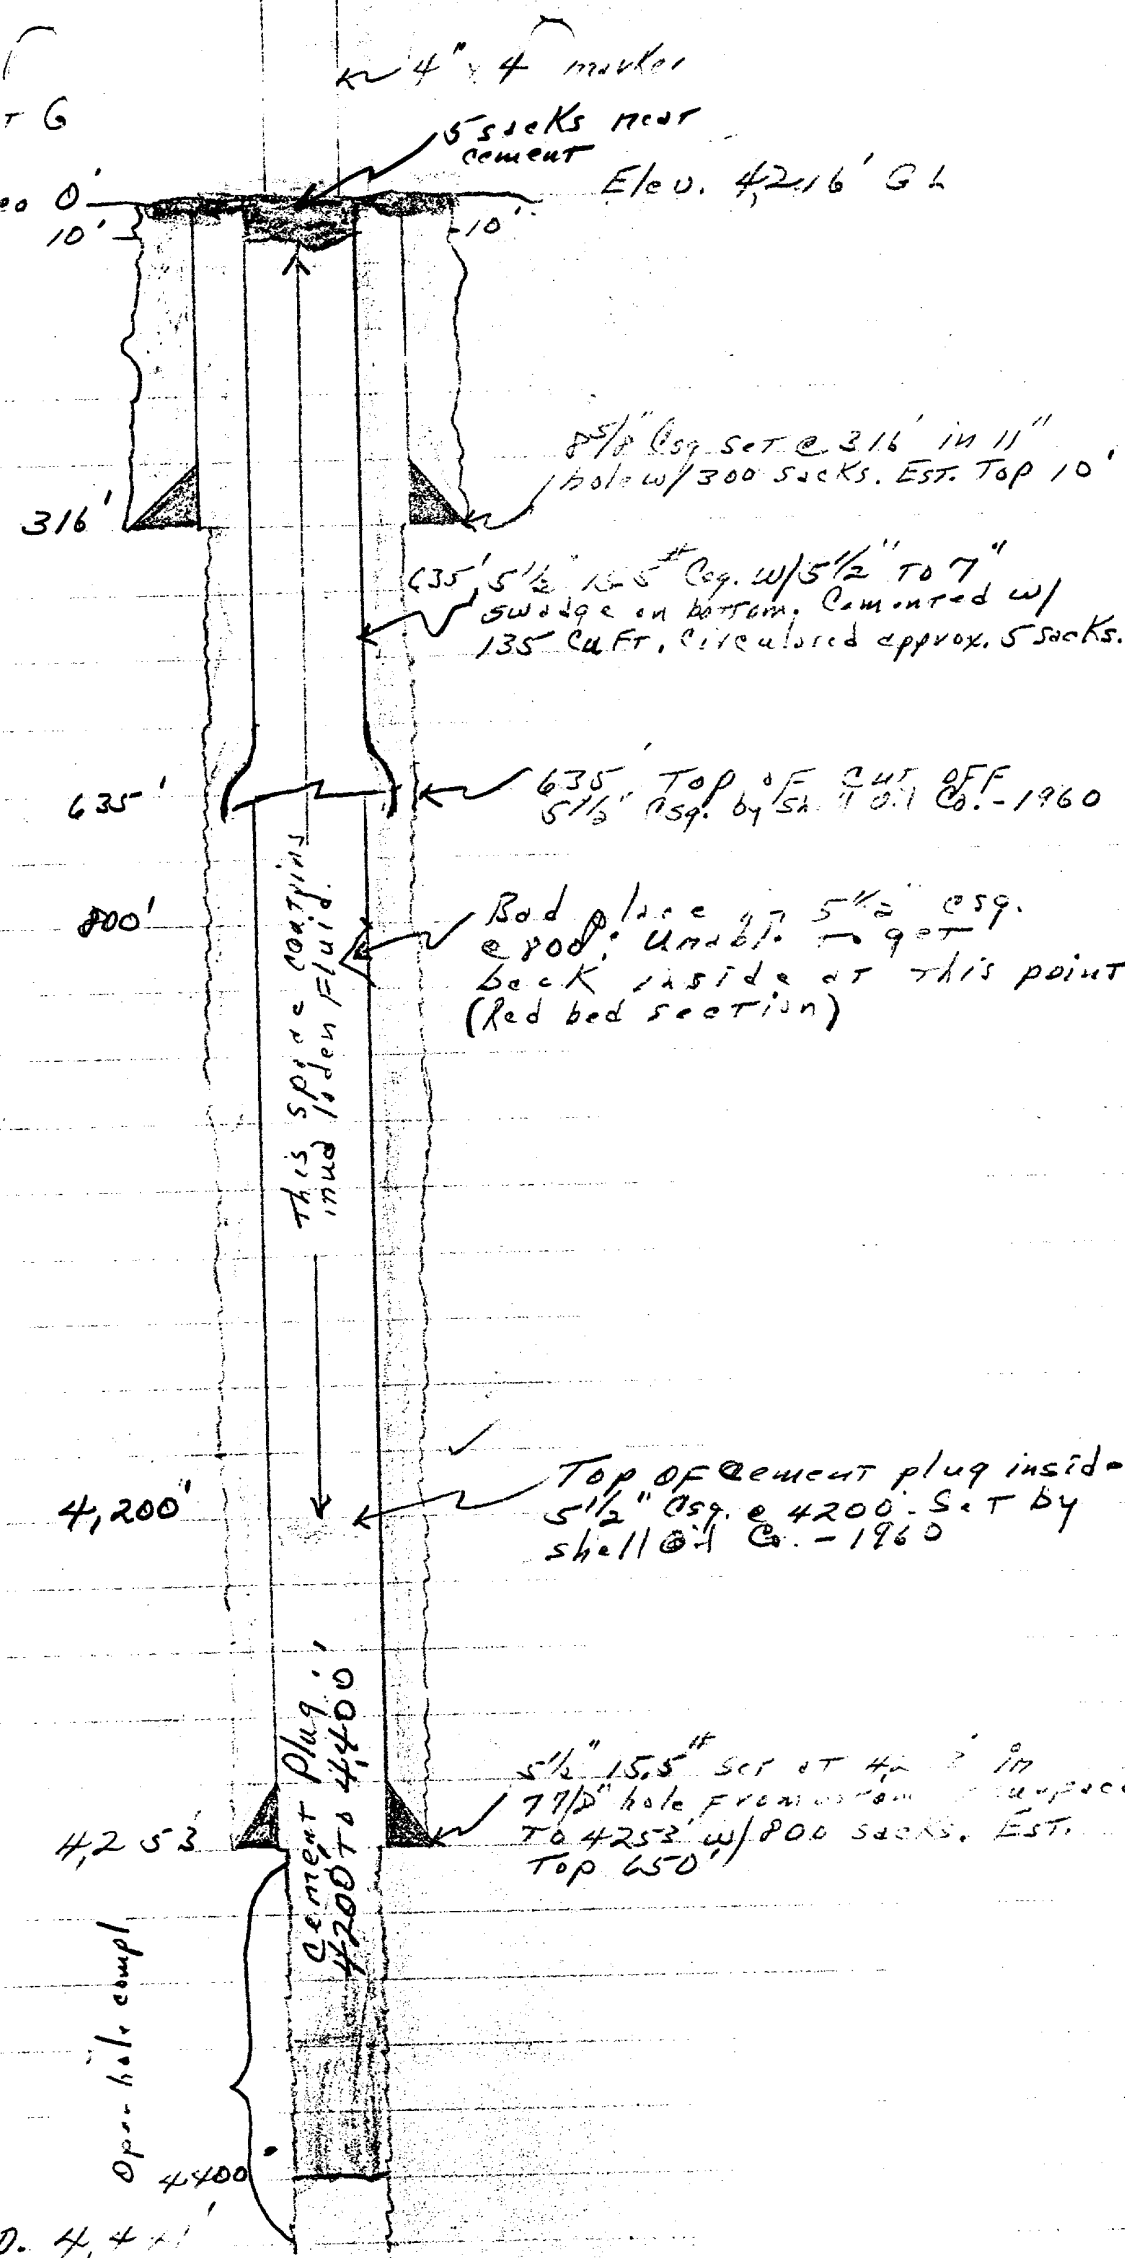 4" x 4" marker
G
5 sacks neat
cement
0'
Elev. 4,216' GL
10'
10'
8 5/8" Csg set @ 316' in 11"
hole w/ 300 sacks. Est. Top 10'
316'
635', 5 1/2" 15.5# Csg. w/ 5 1/2" To 7"
swadge on bottom. Cemented w/
135 Cu Ft. Circulated approx. 5 sacks.
635'
635' Top of cut off
5 1/2" Csg. by Shell Oil Co. - 1960
800'
Bad place in 5 1/2" csg.
@ 800'. Unable to get
back inside at this point
(Red bed section)
This space contains
mud laden Fluid.
4,200'
Top of cement plug inside
5 1/2" Csg. @ 4200'. Set by
Shell Oil Co. - 1960
Cement Plug
4200' To 4,400'
5 1/2" 15.5# set at in
7 7/8" hole From
To 4253' w/ 800 sacks. Est.
Top 650'
4,253'
Open hole compl
4400'
D. 4,4